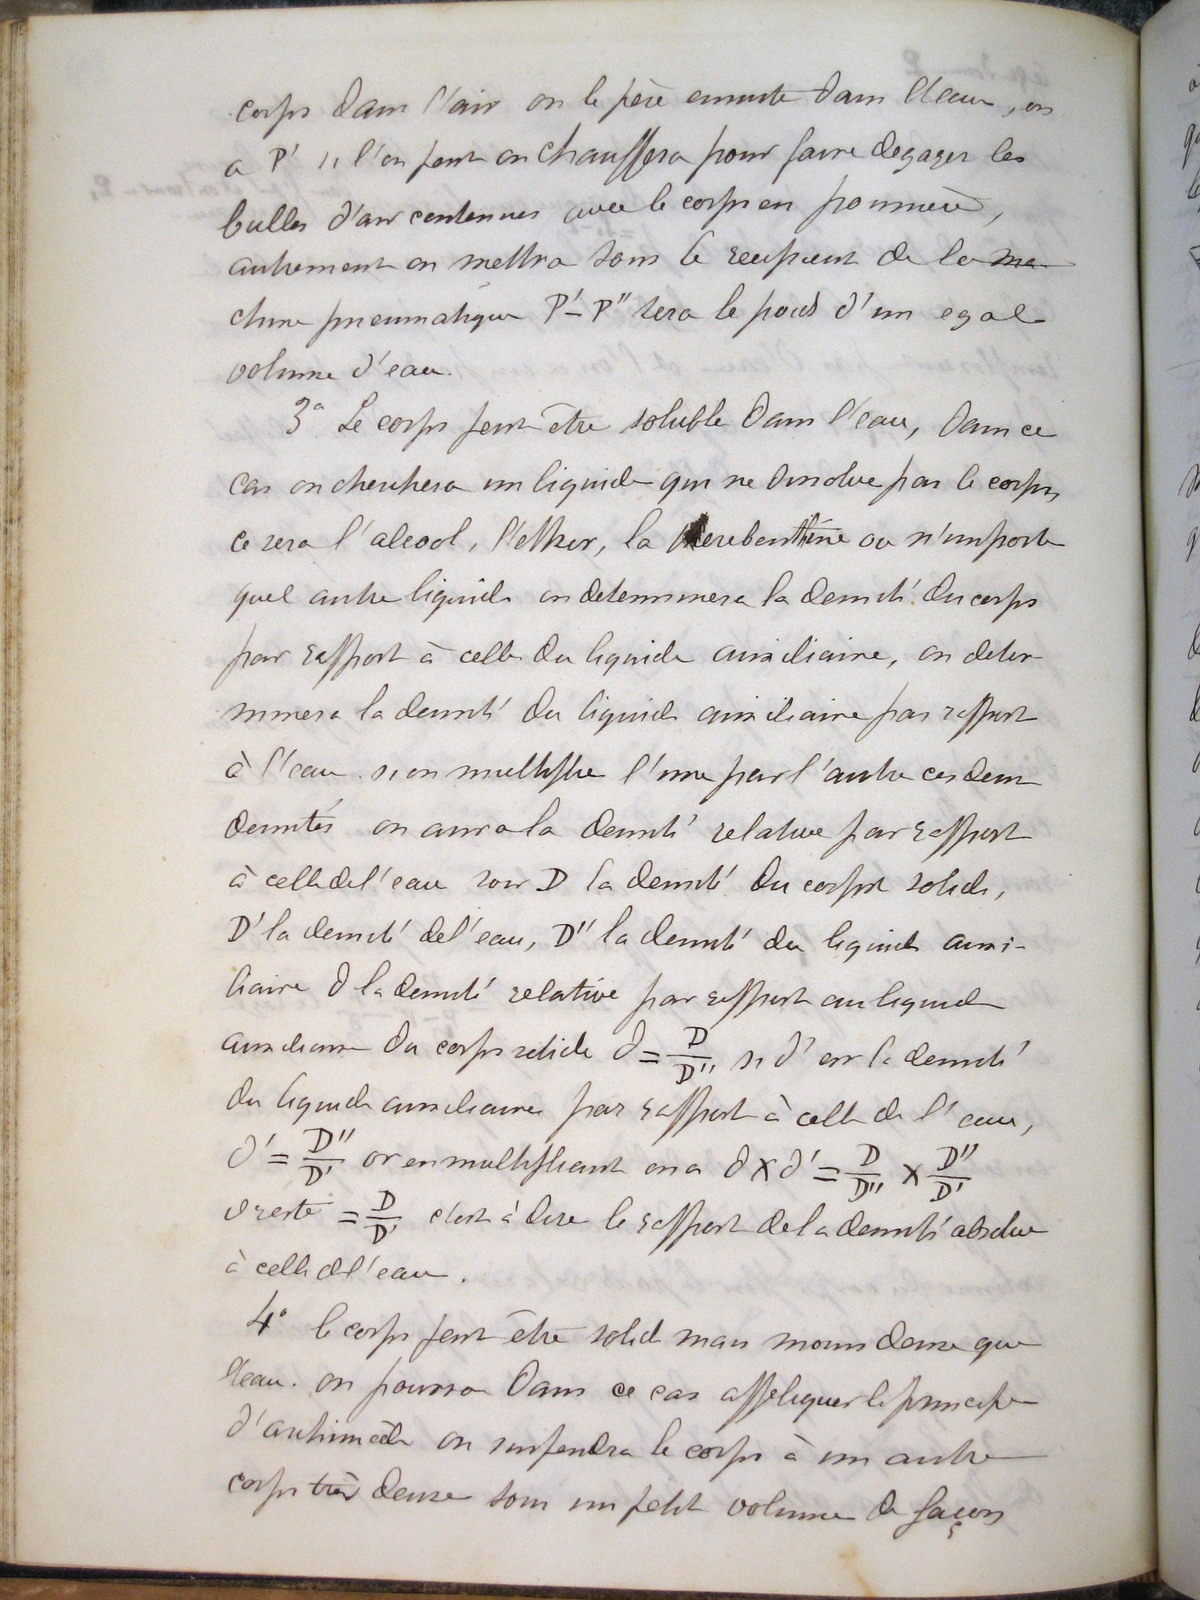 corps dans l'air on le pèse ensuite dans l'eau, on
a P' si l'on peut on chauffera pour faire degager les
bulles d'air contenues avec le corps en poussière,
autrement on mettra sous le recipient de la ma
chine pneumatique P'-P" sera le poids d'un egal
volume d'eau.
3° Le corps peut être soluble dans l'eau, dans ce
cas on cherchera un liquide qui ne dissolve pas le corps,
ce sera l'alcool, l'ether, la terebenthine ou n'importe
quel autre liquide on determinera la densité du corps
par rapport à celle du liquide auxiliaire, on deter
minera la densité du liquide auxiliaire par rapport
à l'eau. si on multiplie l'une par l'autre ces deux
densités on aura la densité relative par rapport
à celle de l'eau soit D la densité du corps solide,
D' la densité de l'eau, D" la densité du liquide auxi-
liaire d la densité relative par rapport au liquide
auxiliaire du corps solide d = D/D" si d' est la densité
du liquide auxiliaire par rapport à celle de l'eau,
d' = D"/D' or en multipliant on a d x d' = D/D" x D"/D'
il reste = D/D' c'est à dire le rapport de la densité absolue
à celle de l'eau.
4° le corps peut être solide mais moins dense que
l'eau. on pourra dans ce cas appliquer le principe
d'archimède on suspendra le corps à un autre
corps très dense sous un petit volume de façon